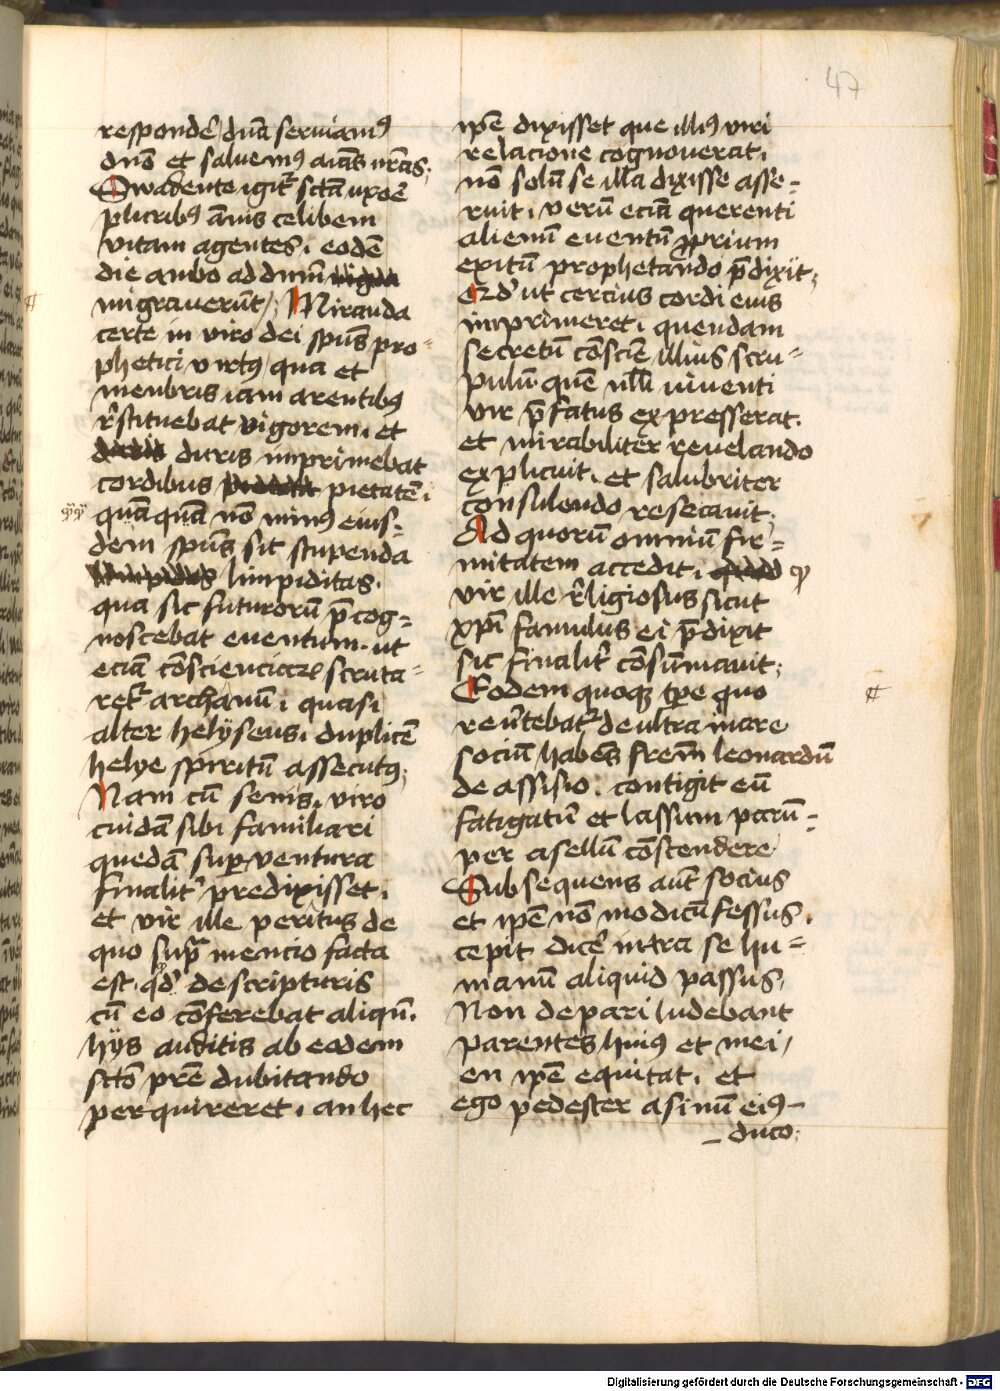 47
respondē / dn̄a seruiamꝰ
dn̄o et saluemꝰ aīas nr̄as;
Swadente igit᷑ sc̄tā uxoē
pluribꝰ annis celibem
vitam agentes. eodē
die ambo ad dn̄m
migrauerūt /; Miranda
certe in viro dei sp̄us pro-
phetici virtꝰ qua et
menbris iam arentibꝰ
r̄stituebat vigorem. et
duris imprimebat
cordibus pietatē.
quāquā nō minꝰ eius-
dem sp̄us sit stupenda
limpiditas.
qua sic futurorū p̄cog-
noscebat euentum. ut
eciā cōscienciaꝝ scruta-
ret᷑ archanū. quasi
alter helyseus. duplicē
helye spiritū assecutꝰ;
Nam cū senis. viro
cuidā sibi familiari
quedā suꝑventura
finalit᷑ predixisset.
et vir ille peritus de
quo sup̄ mencio facta
est. qd᷑ de scripturis
cū eo cōferebat aliqn̄.
hys auditis ab eodem
sc̄to pr̄e dubitando
perquireret. an hec
ip̄e dixisset que illiꝰ viri
relacione cognouerat.
nō solū se illa dixisse asse-
ruit. verū eciā querenti
alienū euentū ꝓprium
exitū prophetando p̄dixit;
Et d᷑ ut cercius cordi eius
imprimeret. quendam
secretū cōsciē illius scru-
pulū quē nulli viuenti
vir p̄fatus expresserat.
et mirabiliter reuelando
explicuit. et salubriter
consulendo resecauit.
Ad quorū omniū fir-
mitatem accedit. ꝙ
vir ille r̄ligiosus sicut
xp̄i famulus ei p̄dixit
sic finalit᷑ cōsummauit;
Eodem quoqꝫ tp̄e quo
reu̓tebat᷑ de ultra mare
sociū habēs fr̄em leonardū
de assisio. contigit eū
fatigatū et lassum parū-
per asellū cōscendere
Subsequens aut̄ socius
et ip̄e nō modicū fessus.
cepit dicē intra se hu-
manū aliquid passus.
Non de pari ludebant
parentes huiꝰ et mei /
en ip̄e equitat. et
ego pedester asinū eiꝰ
duco.
Digitalisierung gefördert durch die Deutsche Forschungsgemeinschaft - DFG